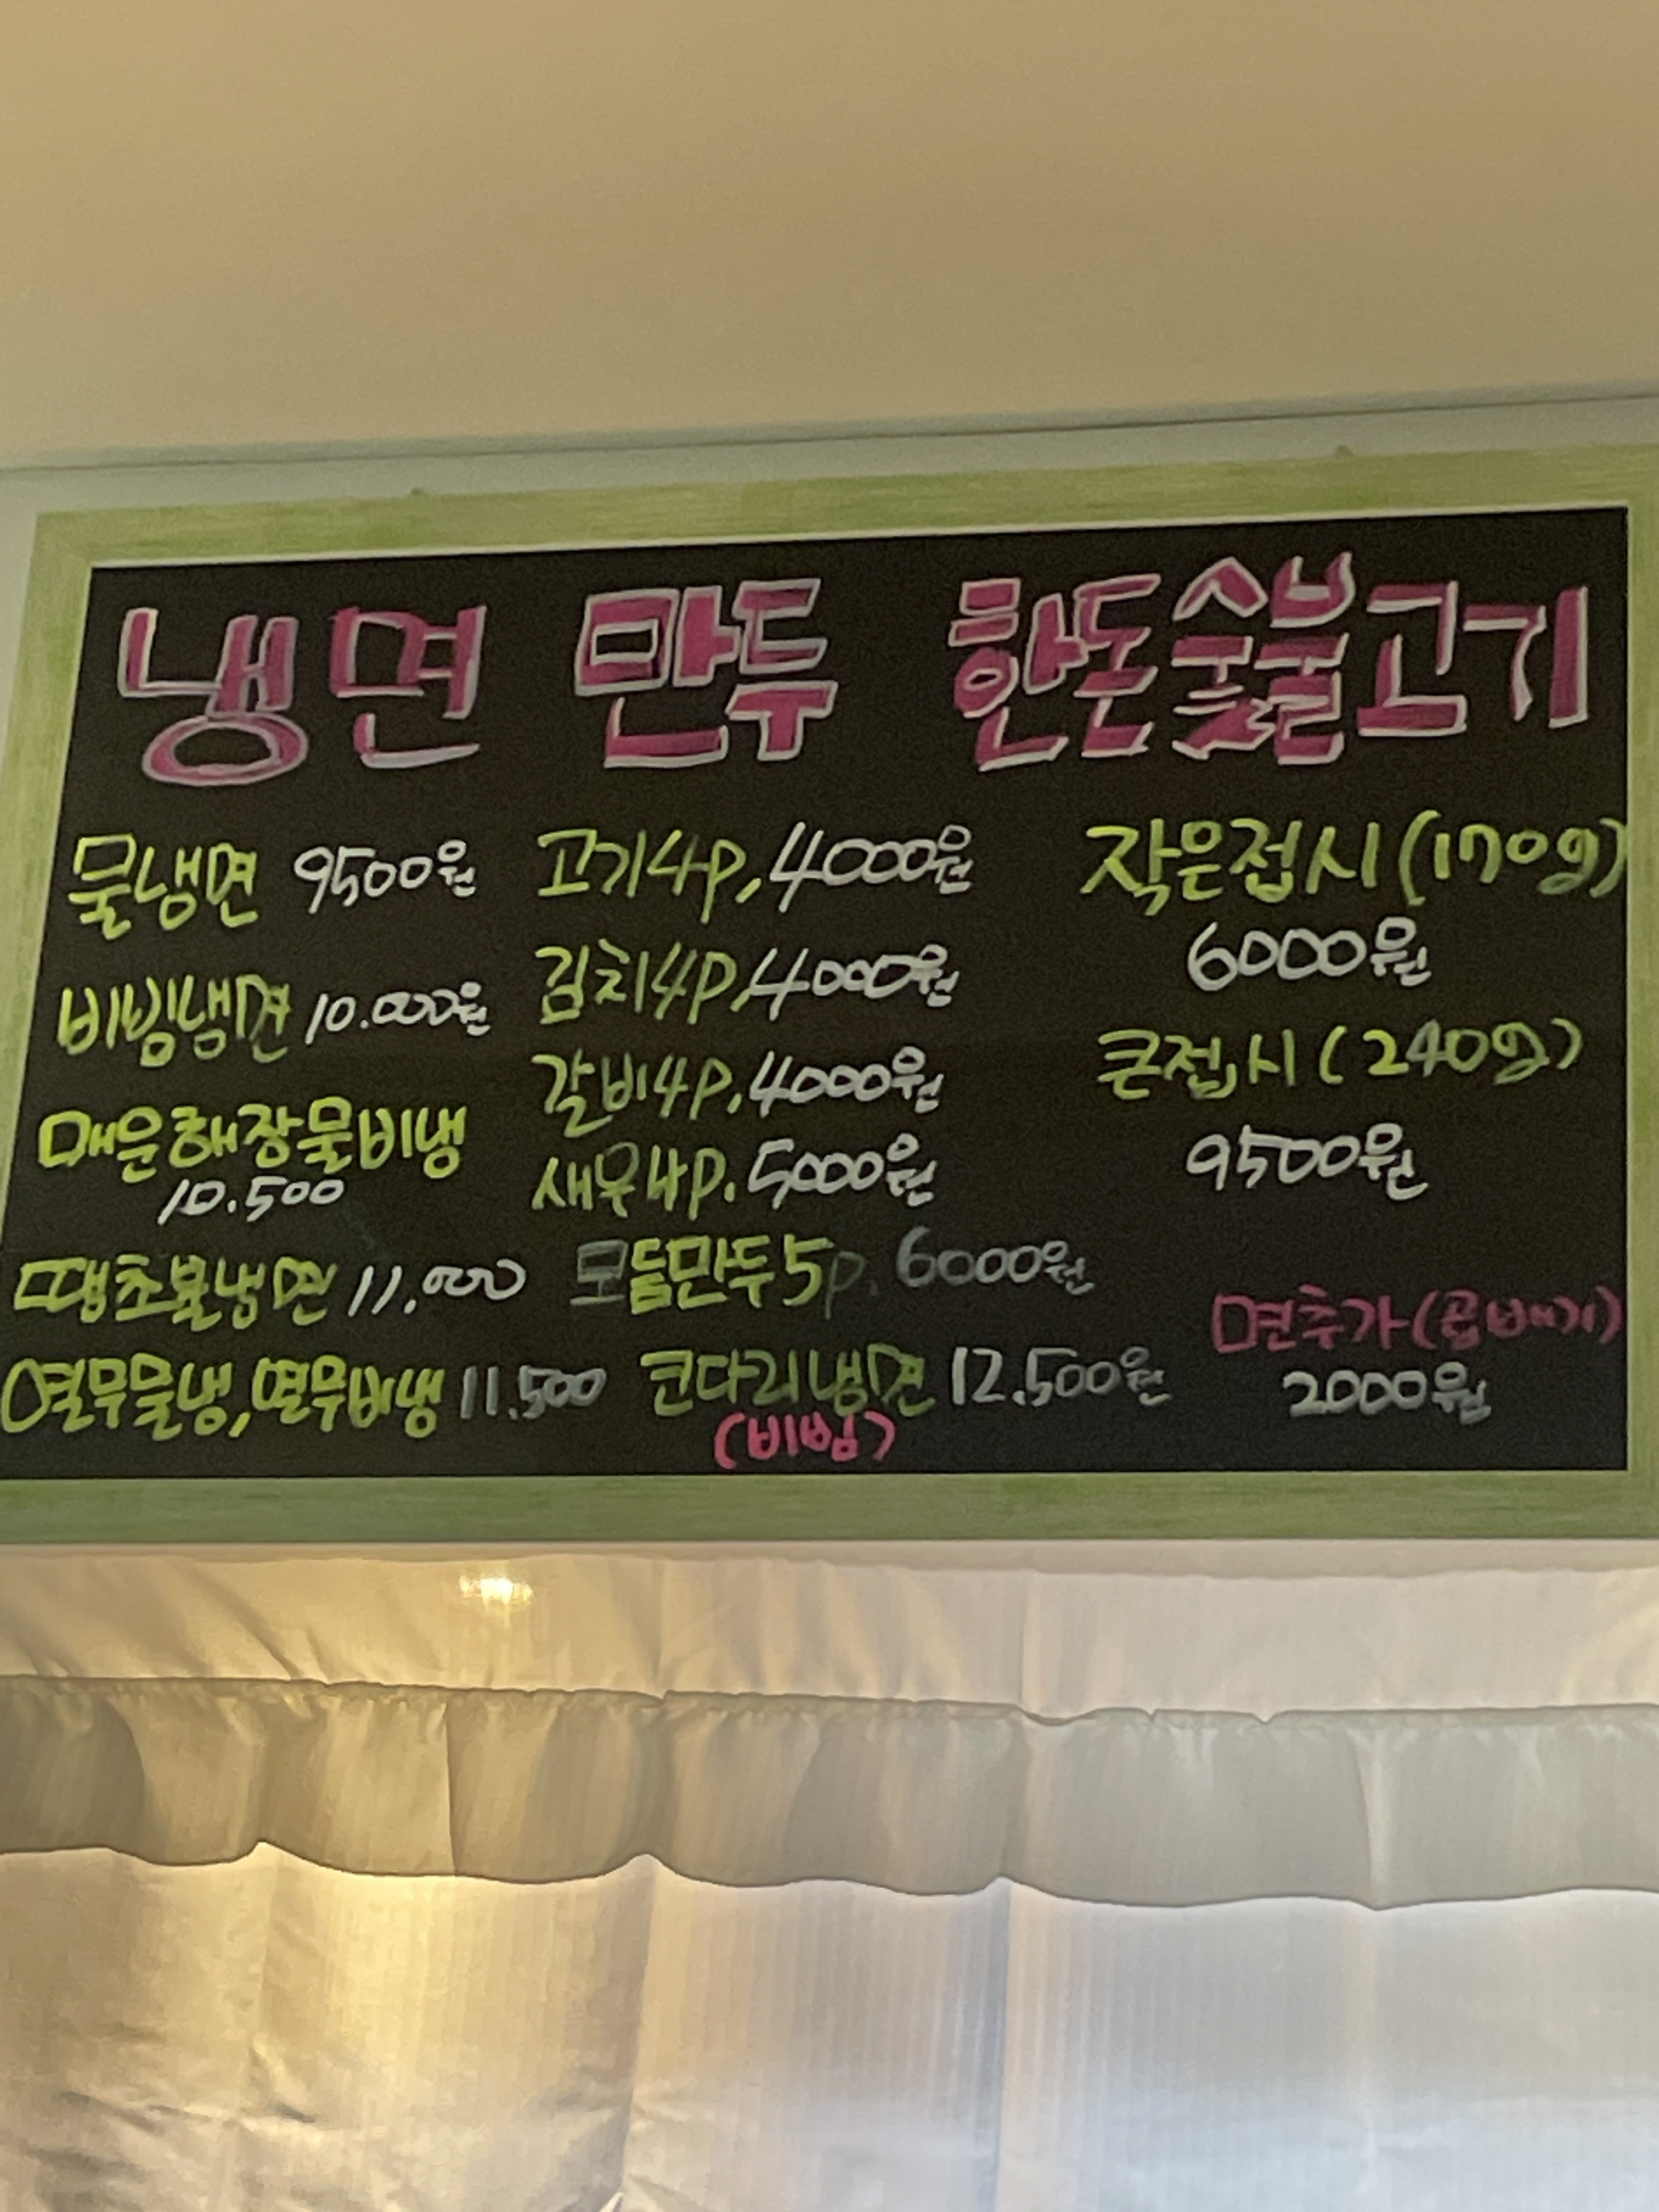 냉면 만두 한돈숯불고기
물냉면 9500원
비빔냉면 10.000원
매운해장물비냉
10.500
땡초불냉면 11.000
열무물냉, 열무비냉 11.500
고기4p, 4000원
김치4p, 4000원
갈비4p, 4000원
새우4p. 5000원
모듬만두5p. 6000원
코다리냉면 12.500원
(비빔)
작은접시(170g)
6000원
큰접시(240g)
9500원
면추가(곱배기)
2000원